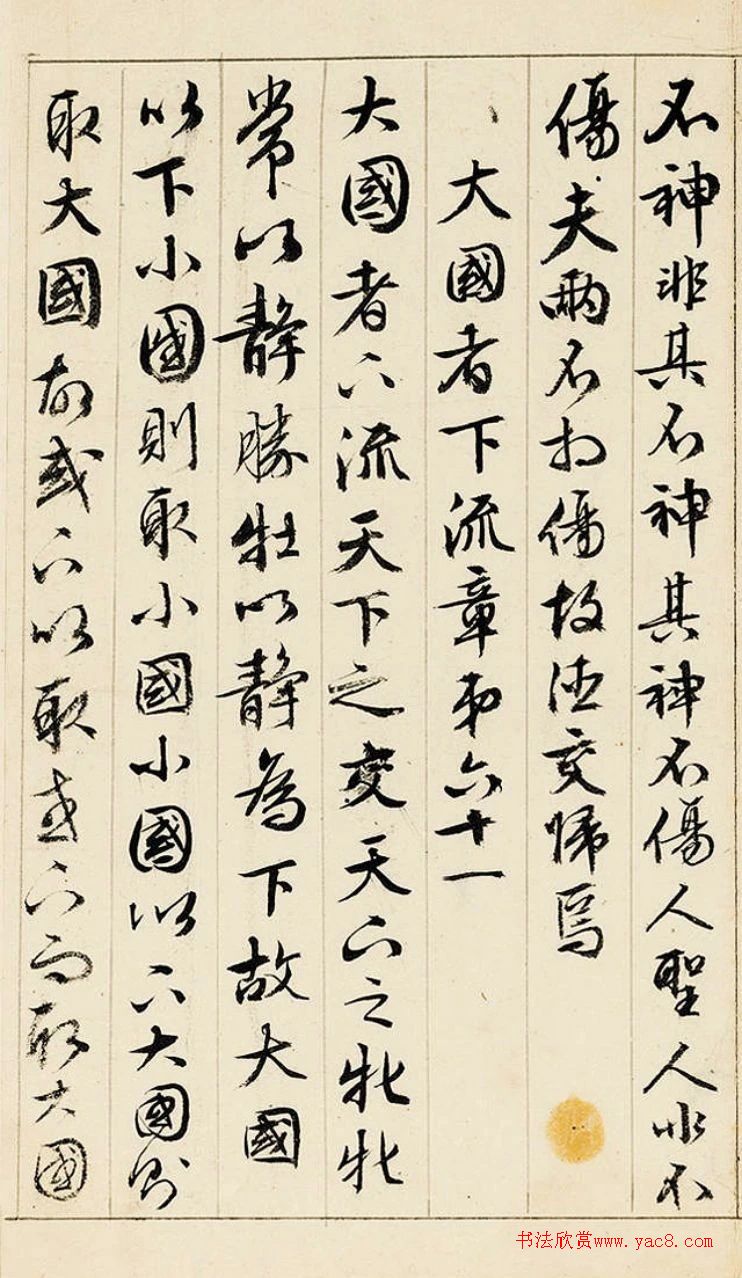 不神非其不神其神不傷人聖人亦不
傷夫兩不相傷故德交歸焉
大國者下流章第六十一
大國者下流天下之交天下之牝牝
常以靜勝牡以靜為下故大國
以下小國則取小國小國以下大國則
取大國故或下以取或下而取大國
书法欣赏www.yac8.com